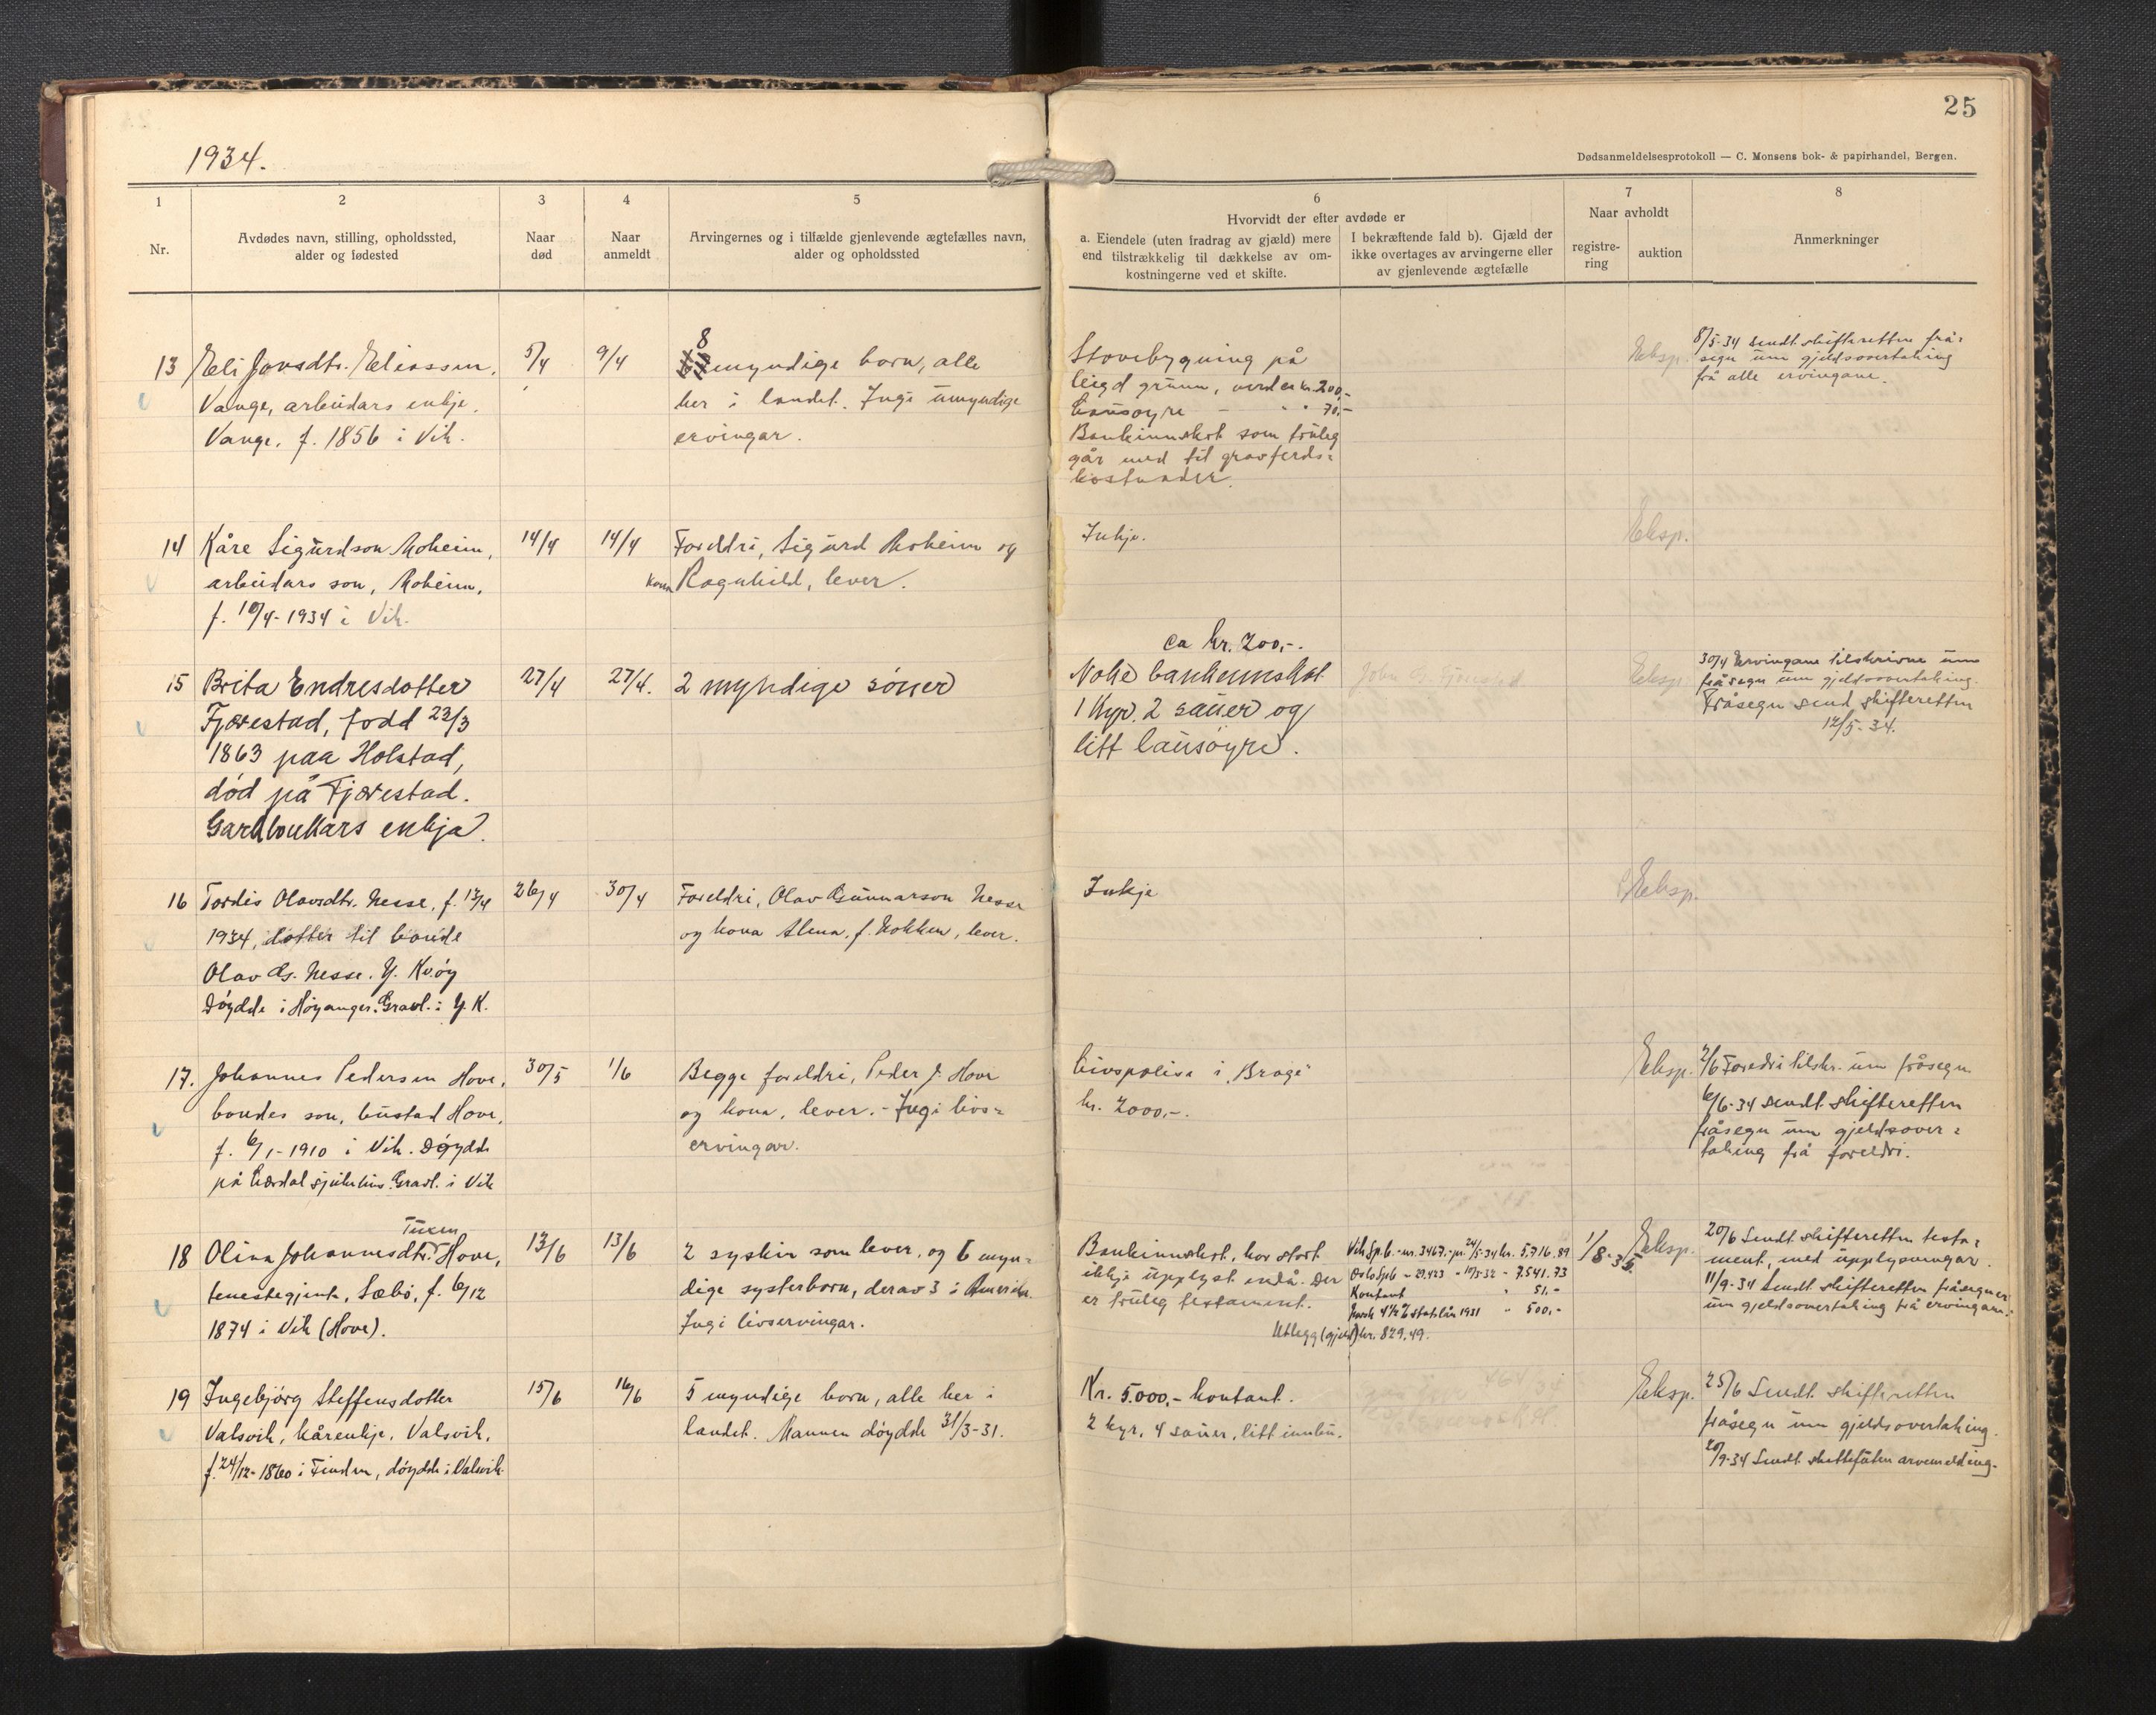 25
1934.
Dødsanmeldelsesprotokoll — C. Monsens bok- & papirhandel, Bergen.
1 2 3 4 5
Nr.
Avdødes navn, stilling, opholdssted,
alder og fødested
Naar
død
Naar
anmeldt
Arvingernes og i tilfælde gjenlevende ægtefælles navn,
alder og opholdssted
6
Hvorvidt der efter avdøde er
a. Eiendele (uten fradrag av gjæld) mere
end tilstrækkelig til dækkelse av om-
kostningerne ved et skifte.
I bekræftende fald b). Gjæld der
ikke overtages av arvingerne eller
av gjenlevende ægtefælle
7
Naar avholdt
registre-
ring
auktion
8
Anmerkninger
13 Eli Jonsdtr. Eliassen,
Vange, arbeidars enkje,
Vange, f. 1856 i Vik.
5/4
9/4
8
myndige born, alle
her i landet. Ingi umyndige
ervingar.
Stovebygning på
leigd grunn, verd ca kr. 200,-
Lausøyre - " " 70,-
Bankinnskot som truleg
går med til gravferds=
kostnader.
Eksp.
8/5-34 sendt skifteretten frå=
segn um gjeldsovertaking
frå alle ervingane.
14 Kåre Sigurdson Moheim,
arbeidars son, Moheim,
f. 10/4-1934 i Vik.
14/4
14/4
Foreldri, Sigurd Moheim og
kona Ragnhild, lever.
Inkje.
Eksp.
15 Brita Endresdotter
Fjærestad, fødd 23/3
1863 paa Holstad,
død på Fjærestad.
Gardbrukars enkja.
27/4
27/4.
2 myndige sóner
ca kr. 200,-.
Noke bankinnskot
1 kyr, 2 sauer og
litt lausøyre.
Eksp.
30/4 Ervingane tilskrivne um
fråsegn um gjeldsovertaking.
Fråsegn send skifteretten
12/5-34.
16 Tordis Olavsdtr. Nesse, f. 13/4
1934, dotter til bonde
Olav G. Nesse. Y. Kvøy
Døydde i Høyanger. Gravl. i Y. K.
26/4
30/4
Foreldri, Olav Gunnarson Nesse
og kona Alma, f. Nokken, lever.
Inkje
Eksp.
17. Johannes Pedersen Hove,
bondes son, bustad Hove,
f. 6/1-1910 i Vik. Døydde
på Lærdal sjukehus. Gravl. i Vik
30/5
1/6
Begge foreldri, Peder J. Hove
og kona, lever. - Ingi livs=
ervingar.
Livspolise i "Brage"
kr. 2000,-.
Eksp.
2/6 Foreldri tilskr. um fråsegn
6/6-34 sendt skifteretten
fråsegn um gjeldsover=
taking frå foreldri.
Tuxen
18 Olina Johannesdtr. Hove,
tenestegjente, Sæbø, f. 6/12
1874 i Vik (Hove).
13/6
13/6
2 syskin som lever, og 6 myn=
dige systerborn, derav 3 i Amerika.
Ingi livservingar.
Bankinnskot, kor stort
ikkje upplyst endå. Der
er truleg testament.
Vik Sp.b. - nr. 3467.- pr. 24/5-34 kr. 5,716.89
Oslo Spb - 29.423 - 10/5-32 - 7.541.73
Kontant " 51.-
Norsk 4½% statslån 1931 " 500.-
Utlegg (gjeld) kr. 829.49.
1/8-35
Eksp.
20/6 Sendt skifteretten testa=
ment, med upplysningar.
11/9-34 Sendt skifteretten fråsegner
um gjeldsovertaking frå ervingane.
19 Ingebjørg Steffensdotter
Valsvik, kårenkje, Valsvik,
f. 24/12-1860 i Finden, døydde i Valsvik.
15/6
16/6
5 myndige born, alle her i
landet. Mannen døydde 31/3-31.
Kr. 5.000,- kontant.
2 kyr, 4 sauer, litt innbu.
Eksp.
25/6 Sendt skifteretten
fråsegn um gjeldsovertaking.
20/9-34 Sendt skattefuten arvemelding.